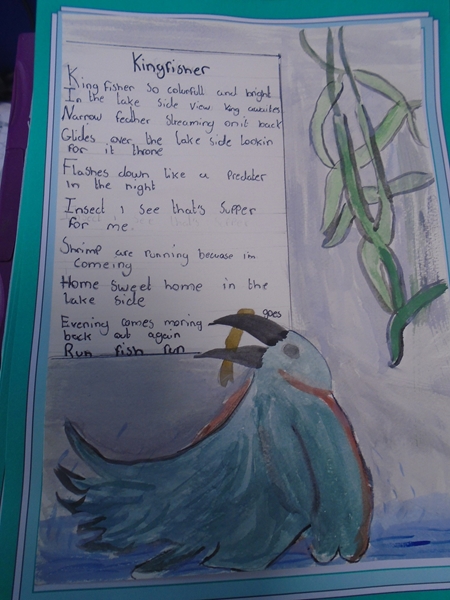 Kingfisher
King fisher so colorfull and bright
In the lake side view king awaites
Narrow feather streaming on it back
Glides over the lake side lookin
for it throne
Flashes down like a Predater
in the night
Insect I see that's Supper
for me
Shrimp are running because im
comeing
Home sweet home in the
lake side
Evening comes moring goes
back out again
Run fish run